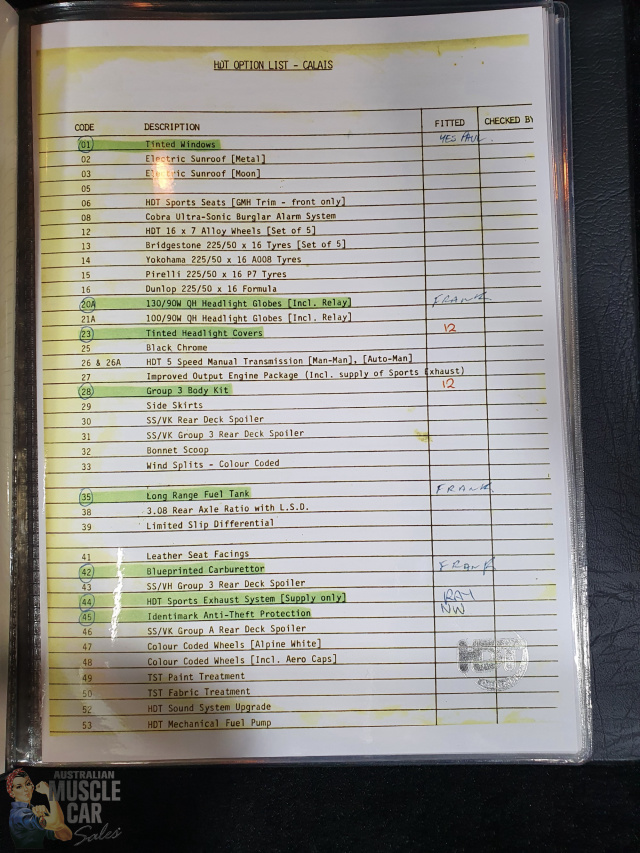 HDT OPTION LIST - CALAIS
CODE DESCRIPTION FITTED CHECKED BY
01 Tinted Windows YES PAUL.
02 Electric Sunroof [Metal]
03 Electric Sunroof [Moon]
05
06 HDT Sports Seats [GMH Trim - front only]
08 Cobra Ultra-Sonic Burglar Alarm System
12 HDT 16 x 7 Alloy Wheels [Set of 5]
13 Bridgestone 225/50 x 16 Tyres [Set of 5]
14 Yokohama 225/50 x 16 A008 Tyres
15 Pirelli 225/50 x 16 P7 Tyres
16 Dunlop 225/50 x 16 Formula
20A 130/90W QH Headlight Globes [Incl. Relay] FRANK
21A 100/90W QH Headlight Globes [Incl. Relay]
23 Tinted Headlight Covers 12
25 Black Chrome
26 & 26A HDT 5 Speed Manual Transmission [Man-Man], [Auto-Man]
27 Improved Output Engine Package (Incl. supply of Sports Exhaust)
28 Group 3 Body Kit 12
29 Side Skirts
30 SS/VK Rear Deck Spoiler
31 SS/VK Group 3 Rear Deck Spoiler
32 Bonnet Scoop
33 Wind Splits - Colour Coded
35 Long Range Fuel Tank FRANK
38 3.08 Rear Axle Ratio with L.S.D.
39 Limited Slip Differential
41 Leather Seat Facings
42 Blueprinted Carburettor FRANK
43 SS/VH Group 3 Rear Deck Spoiler
44 HDT Sports Exhaust System [Supply only] RAY
45 Identimark Anti-Theft Protection NW
46 SS/VK Group A Rear Deck Spoiler
47 Colour Coded Wheels [Alpine White]
48 Colour Coded Wheels [Incl. Aero Caps]
49 TST Paint Treatment
50 TST Fabric Treatment
52 HDT Sound System Upgrade
53 HDT Mechanical Fuel Pump
HDT
AUSTRALIAN
MUSCLE
CAR
Sales